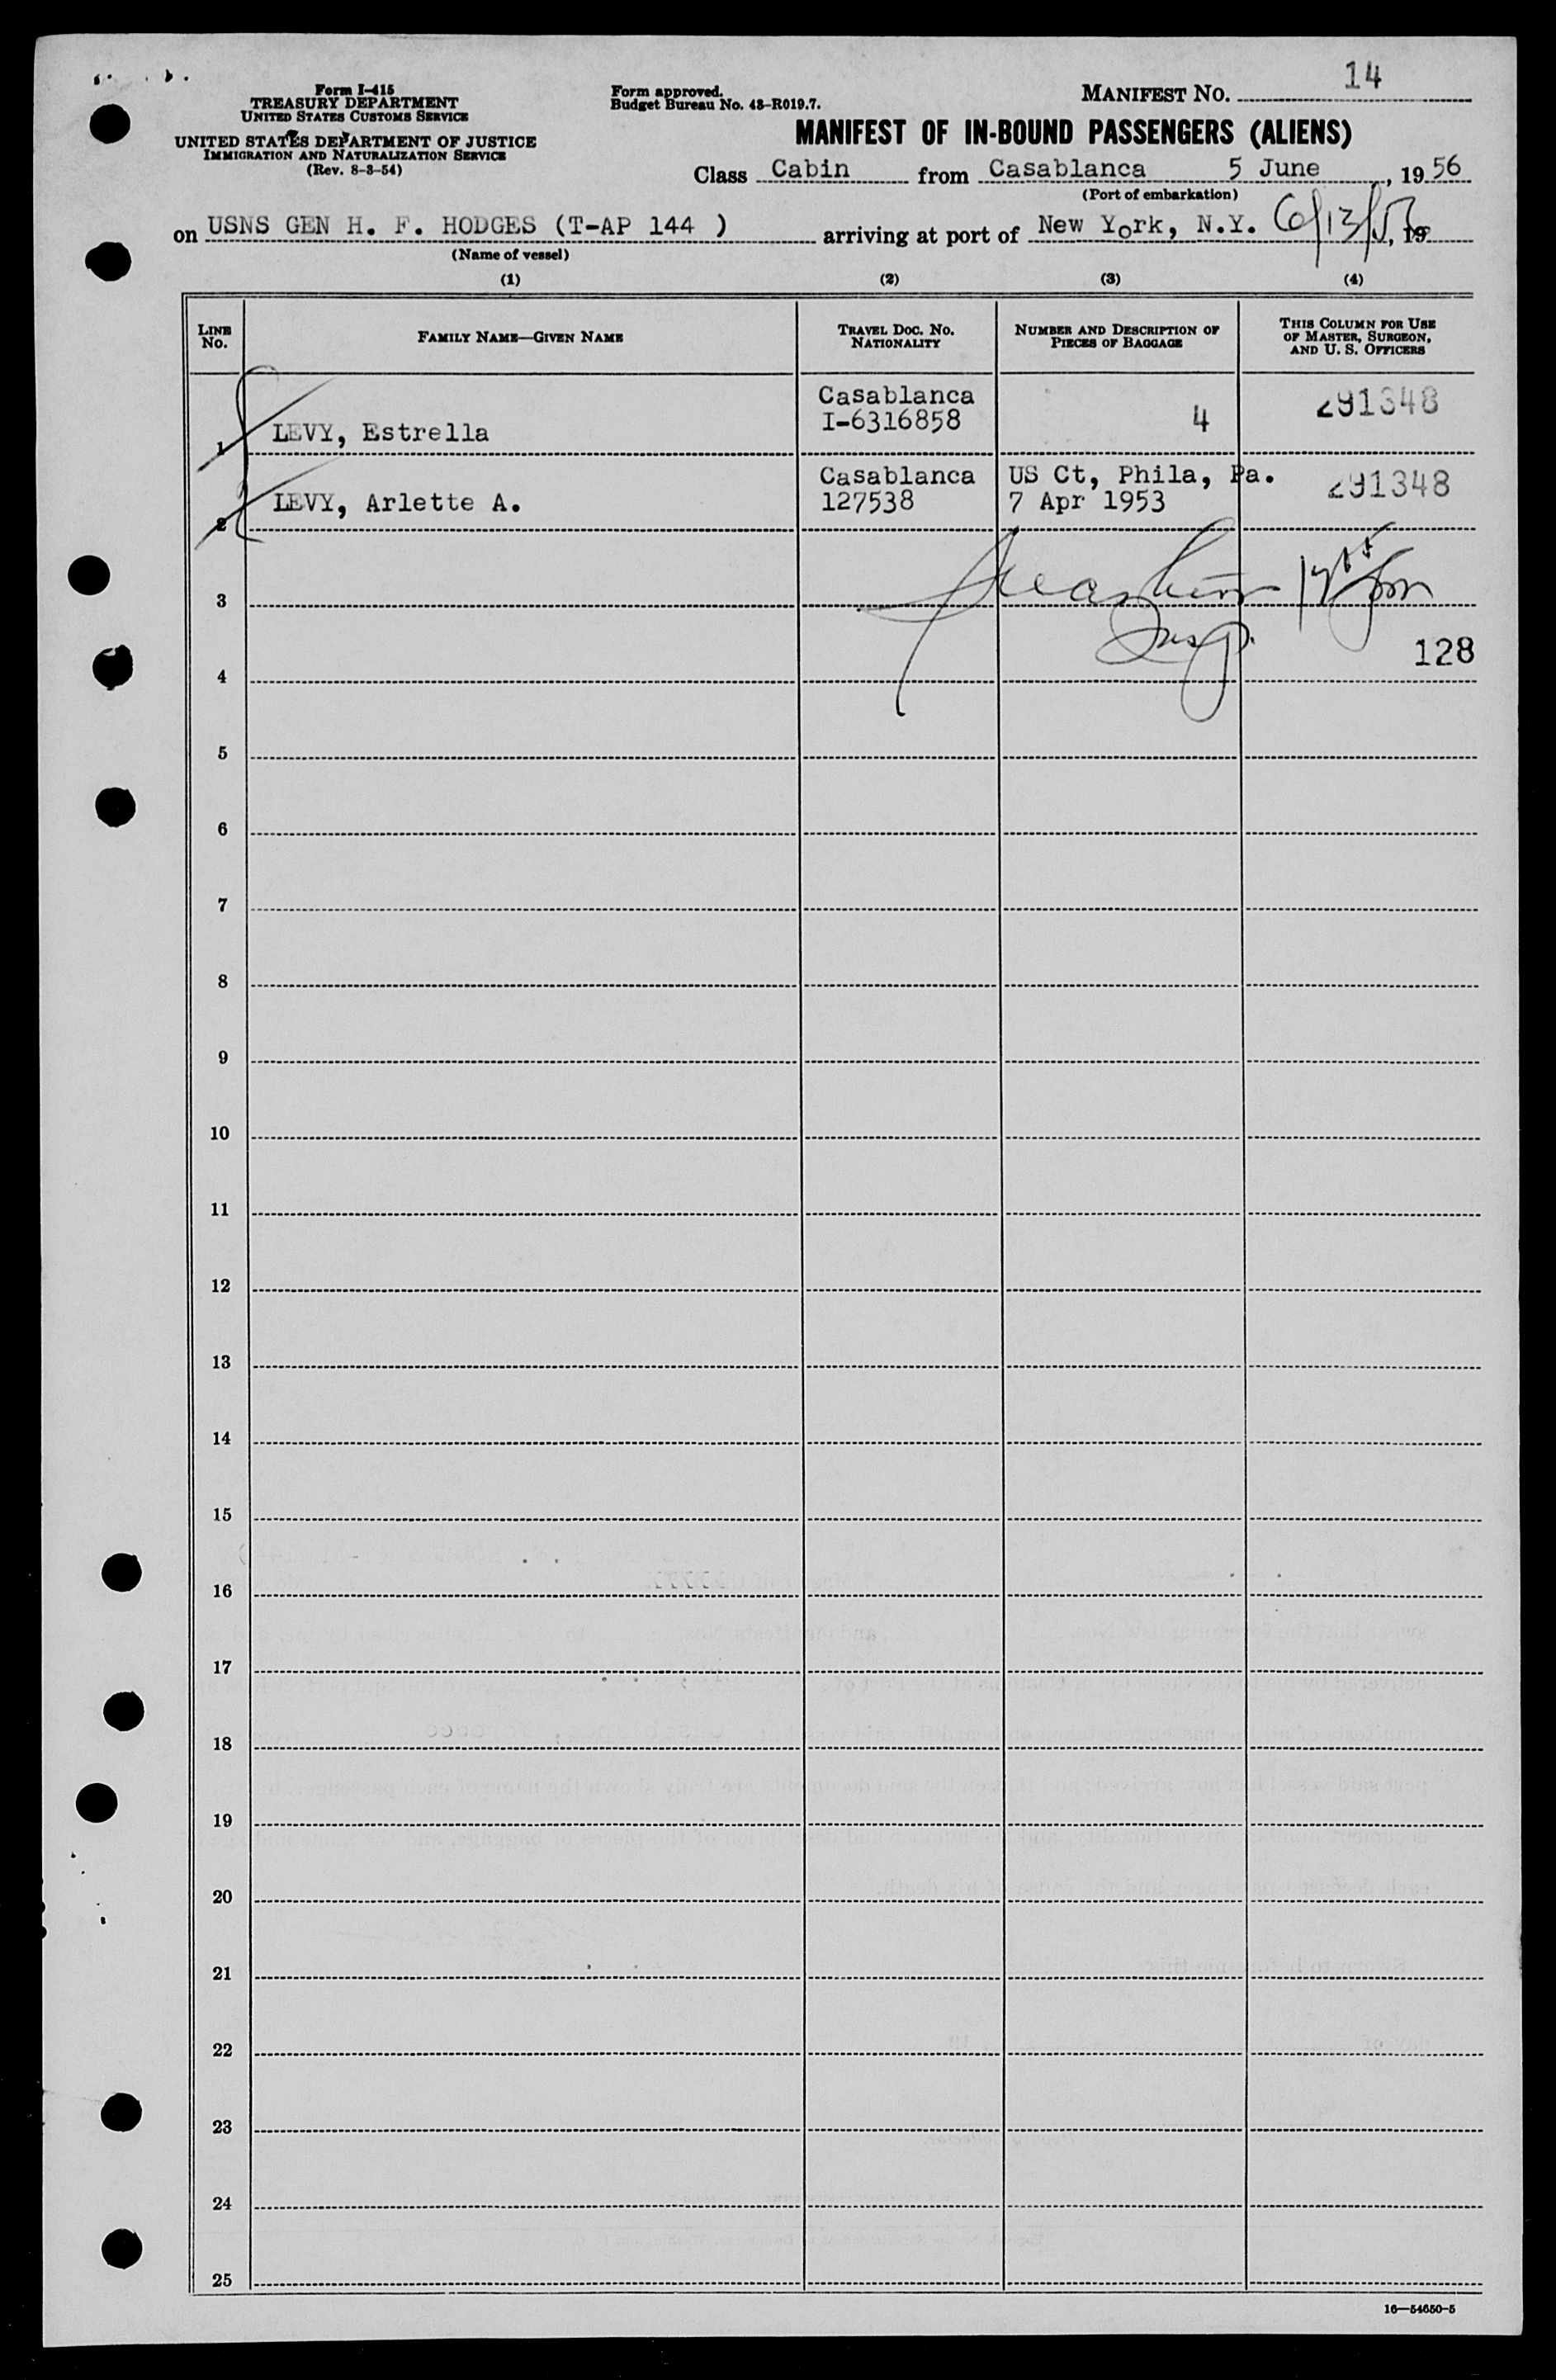 Form I-415
TREASURY DEPARTMENT
UNITED STATES CUSTOMS SERVICE
UNITED STATES DEPARTMENT OF JUSTICE
IMMIGRATION AND NATURALIZATION SERVICE
(Rev. 8-3-54)
Form approved.
Budget Bureau No. 43-R019.7.
MANIFEST NO. 14
MANIFEST OF IN-BOUND PASSENGERS (ALIENS)
Class Cabin from Casablanca 5 June, 1956
(Port of embarkation)
on USNS GEN H. F. HODGES (T-AP 144 ) arriving at port of New York, N.Y. 6/13/5 , 19
(Name of vessel)
(1) (2) (3) (4)
LINE No. FAMILY NAME—GIVEN NAME TRAVEL DOC. NO. NATIONALITY NUMBER AND DESCRIPTION OF PIECES OF BAGGAGE THIS COLUMN FOR USE OF MASTER, SURGEON, AND U. S. OFFICERS
1 LEVY, Estrella Casablanca I-6316858 4 291348
2 LEVY, Arlette A. Casablanca 127538 US Ct, Phila, Pa. 7 Apr 1953 291348
3
Insp.
4 128
5
6
7
8
9
10
11
12
13
14
15
16
17
18
19
20
21
22
23
24
25
16—54650-5